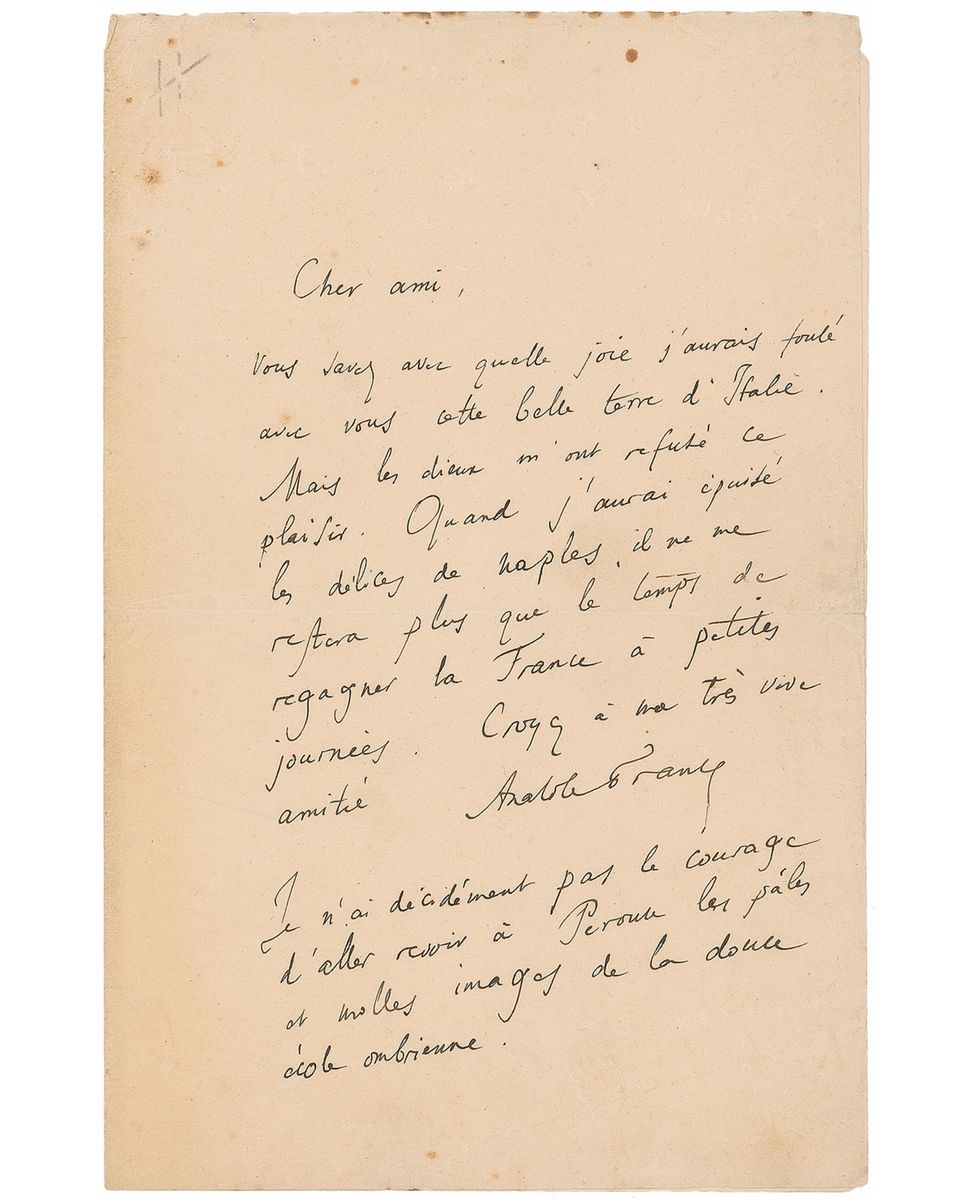 Cher ami,
vous savez avec quelle joie j'aurais foulé
avec vous cette belle terre d'Italie.
Mais les dieux m'ont refusé ce
plaisir. Quand j'aurai épuisé
les délices de naples, il ne me
restera plus que le temps de
regagner la France à petites
journées. Croyez à ma très vive
amitié Anatole France
Je n'ai décidément pas le courage
d'aller revoir à Perouse les pâles
et molles images de la douce
école ombrienne.